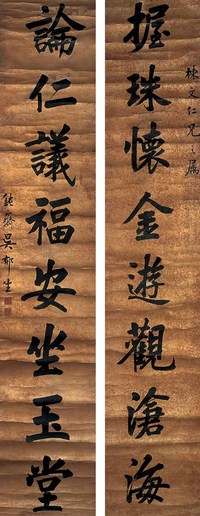 握珠懷金遊觀滄海
棟文仁兄之屬
論仁議福安坐玉堂
鈍齋吳郁生